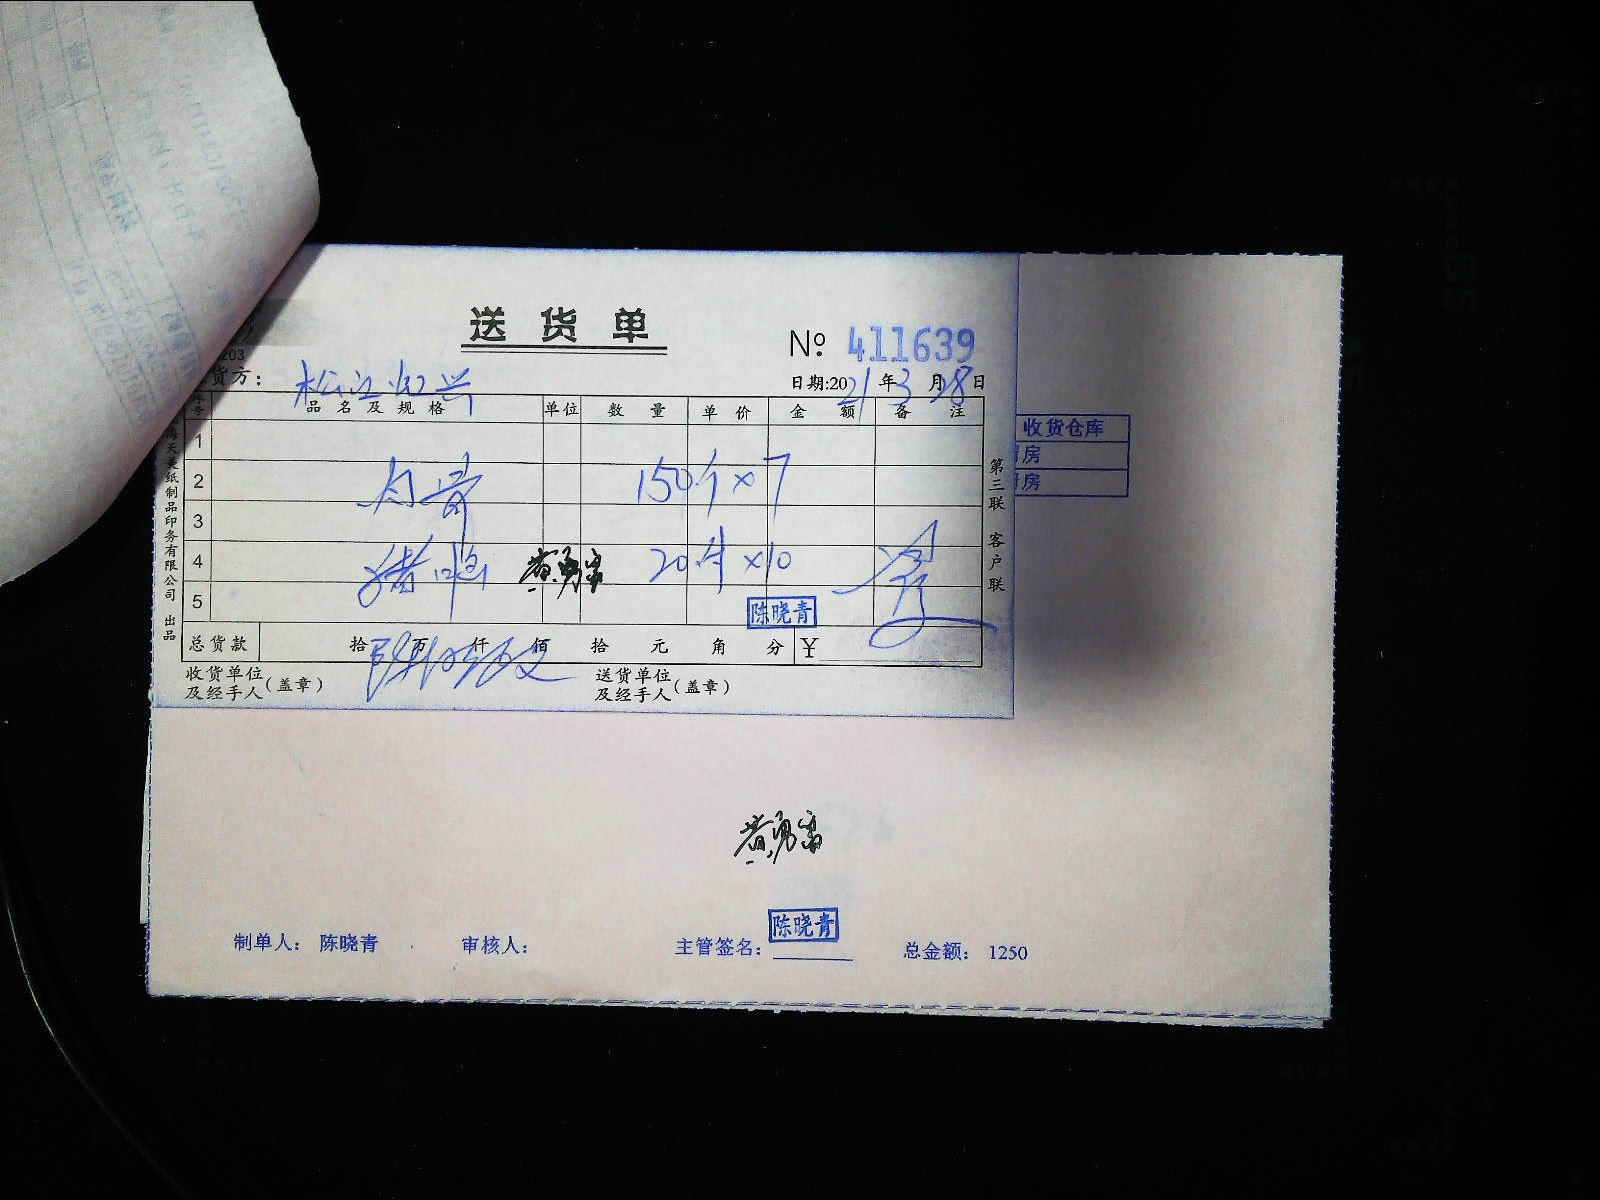 送货单
№ 411639
203
货方： 松江
日期:2021年3月28日
序号 品名及规格 单位 数量 单价 金额 备注
1
2 肉 150个×7
3
4 猪 黄勇富 20 ×10
5
陈晓青
总货款 拾 万 仟 佰 拾 元 角 分 ¥
收货单位及经手人（盖章）
送货单位及经手人（盖章）
海天美纸制品印务有限公司 出品
第三联 客户联
收货仓库
房
房
黄勇富
陈晓青
制单人： 陈晓青 审核人： 主管签名： 总金额： 1250